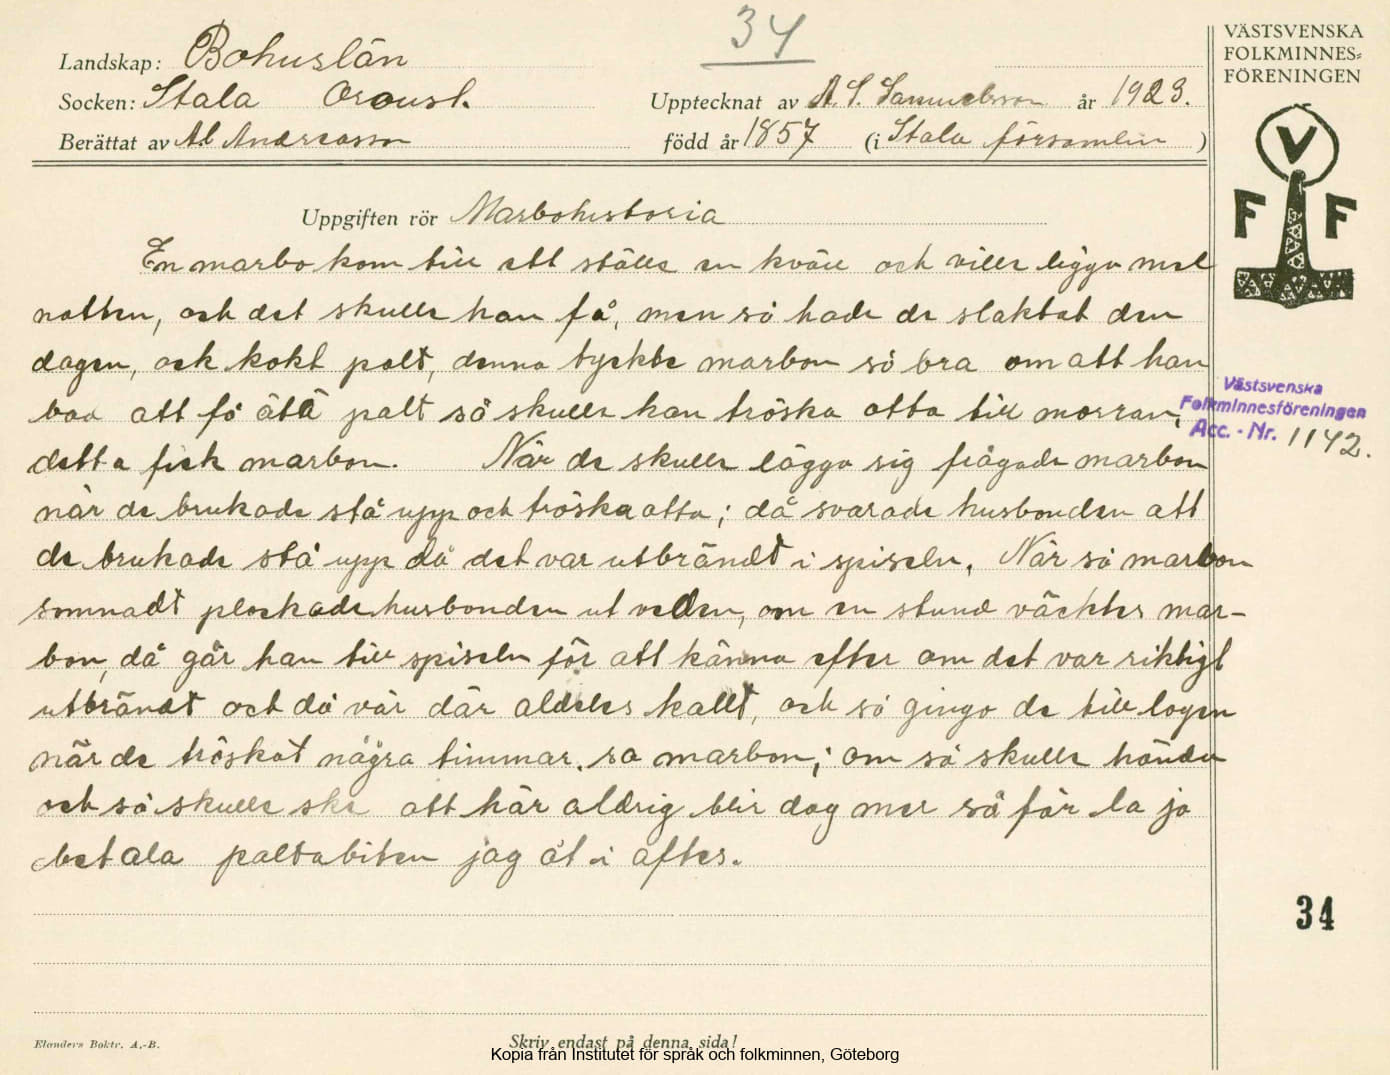 34
VÄSTSVENSKA
FOLKMINNES=
FÖRENINGEN
Landskap: Bohuslän
Socken: Stala Oroust. Upptecknat av A. S. Samuelsson år 1923.
Berättat av Al Andreasson född år 1857 (i Stala församlin )
V
F F
Uppgiften rör Marbohistoria
En marbo kom till ett ställe en kväll och ville ligga mel
natten, och det skulle han få, men så hade de slaktat den
dagen, ock kokt palt, denna tyckte marbon så bra om att han
bad att få äta palt så skulle han tröska otta till morran,
detta fick marbon. När de skulle lägga sig frågade marbon
när de brukade stå upp och tröska otta; då svarade husbonden att
de brukade stå upp då det var utbrändt i spiseln. När så marbon
somnadt plockade husbonden ut veden, om en stund väcktes mar-
bon, då går han till spiseln för att känna efter om det var riktigt
utbrändt och då var där aldeles kallt, och så gingo de till logen
när de tröskat några timmar. sa marbon; om så skulle hända
och så skulle ske att här aldrig blir dag mer så får la ja
betala paltabiten jag åt i aftes.
Västsvenska
Folkminnesföreningen
Acc. - Nr. 1142.
34
Elanders Boktr. A.-B.
Skriv endast på denna sida!
Kopia från Institutet för språk och folkminnen, Göteborg